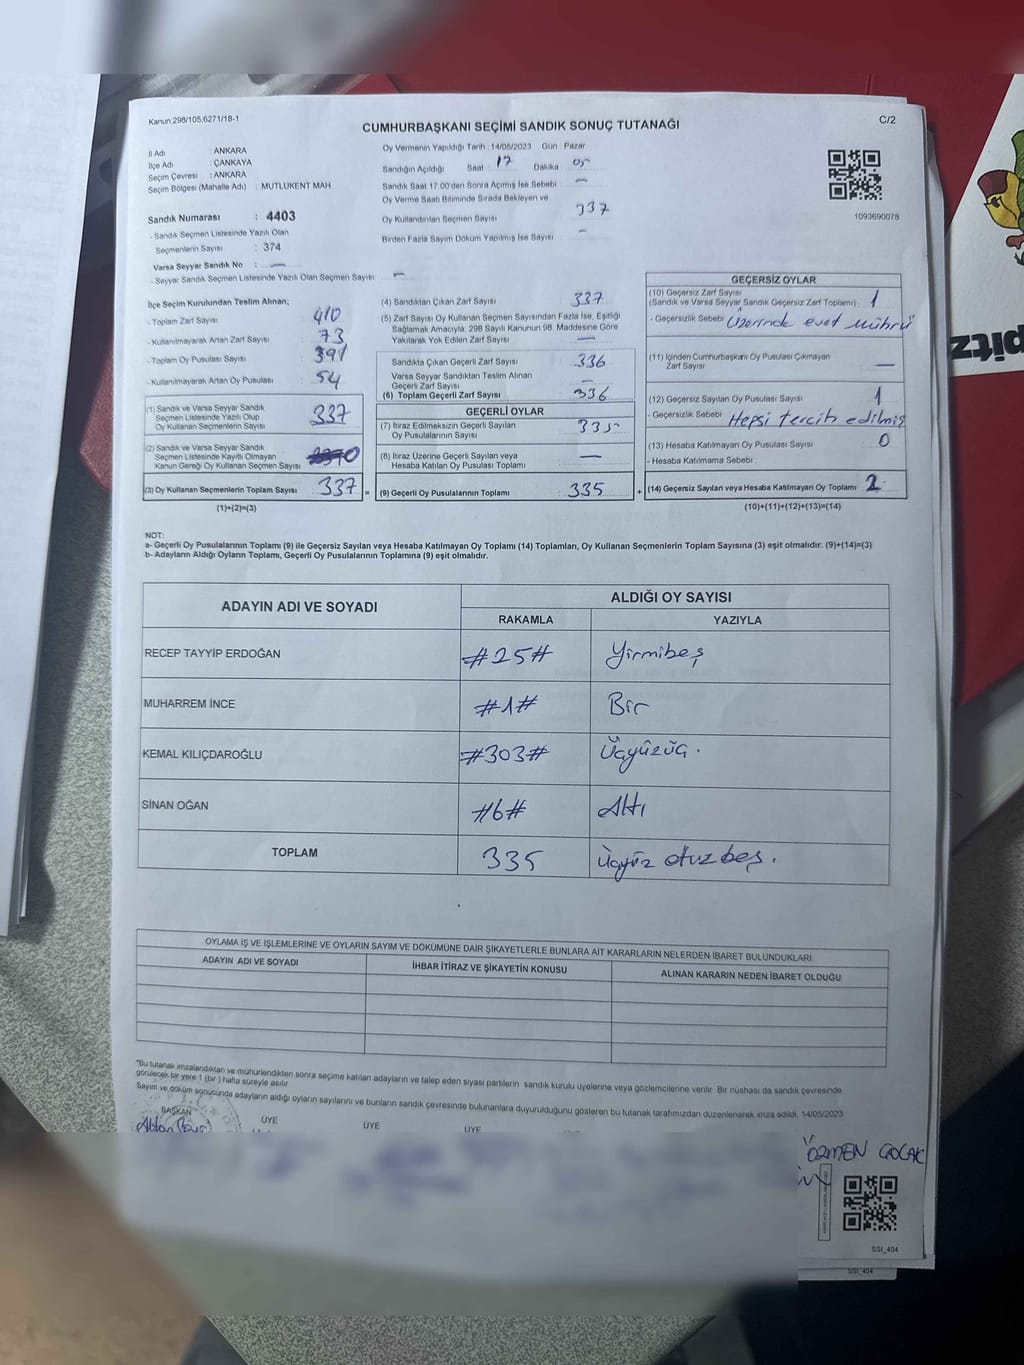 Kanun.298/105,6271/18-1
CUMHURBAŞKANI SEÇİMİ SANDIK SONUÇ TUTANAĞI
C/2
İl Adı : ANKARA
İlçe Adı : ÇANKAYA
Seçim Çevresi : ANKARA
Seçim Bölgesi (Mahalle Adı) : MUTLUKENT MAH
Sandık Numarası : 4403
- Sandık Seçmen Listesinde Yazılı Olan
Seçmenlerin Sayısı : 374
Varsa Seyyar Sandık No : —
- Seyyar Sandık Seçmen Listesinde Yazılı Olan Seçmen Sayısı : —
Oy Vermenin Yapıldığı Tarih : 14/05/2023 Gün : Pazar
Sandığın Açıldığı Saat : 17 Dakika : 05
Sandık Saat 17.00'den Sonra Açımış İse Sebebi : —
Oy Verme Saati Bitiminde Sırada Bekleyen ve
Oy Kullandırılan Seçmen Sayısı : 337
Birden Fazla Sayım Döküm Yapılmış İse Sayısı : —
1093690078
İlçe Seçim Kurulundan Teslim Alınan;
- Toplam Zarf Sayısı : 410
- Kullanılmayarak Artan Zarf Sayısı : 73
- Toplam Oy Pusulası Sayısı : 391
- Kullanılmayarak Artan Oy Pusulası : 54
(1) Sandık ve Varsa Seyyar Sandık
Seçmen Listesinde Yazılı Olup
Oy Kullanan Seçmenlerin Sayısı : 337
(2) Sandık ve Varsa Seyyar Sandık
Seçmen Listesinde Kayıtlı Olmayan
Kanun Gereği Oy Kullanan Seçmen Sayısı : 0
(3) Oy Kullanan Seçmenlerin Toplam Sayısı : 337 =
(1)+(2)=(3)
(4) Sandıktan Çıkan Zarf Sayısı : 337
(5) Zarf Sayısı Oy Kullanan Seçmen Sayısından Fazla İse, Eşitliği
Sağlamak Amacıyla; 298 Sayılı Kanunun 98. Maddesine Göre
Yakılarak Yok Edilen Zarf Sayısı : —
Sandıkta Çıkan Geçerli Zarf Sayısı : 336
Varsa Seyyar Sandıktan Teslim Alınan
Geçerli Zarf Sayısı : —
(6) Toplam Geçerli Zarf Sayısı : 336
GEÇERLİ OYLAR
(7) İtiraz Edilmeksizin Geçerli Sayılan
Oy Pusulalarının Sayısı : 335
(8) İtiraz Üzerine Geçerli Sayılan veya
Hesaba Katılan Oy Pusulası Toplamı : —
(9) Geçerli Oy Pusulalarının Toplamı : 335 +
GEÇERSİZ OYLAR
(10) Geçersiz Zarf Sayısı
(Sandık ve Varsa Seyyar Sandık Geçersiz Zarf Toplamı) : 1
- Geçersizlik Sebebi : Üzerinde evet mührü
(11) İçinden Cumhurbaşkanı Oy Pusulası Çıkmayan
Zarf Sayısı : —
(12) Geçersiz Sayılan Oy Pusulası Sayısı : 1
- Geçersizlik Sebebi : Hepsi tercih edilmiş
(13) Hesaba Katılmayan Oy Pusulası Sayısı : 0
- Hesaba Katılmama Sebebi :
(14) Geçersiz Sayılan veya Hesaba Katılmayan Oy Toplamı : 2
(10)+(11)+(12)+(13)=(14)
NOT:
a- Geçerli Oy Pusulalarının Toplamı (9) ile Geçersiz Sayılan veya Hesaba Katılmayan Oy Toplamı (14) Toplamları, Oy Kullanan Seçmenlerin Toplam Sayısına (3) eşit olmalıdır. (9)+(14)=(3)
b- Adayların Aldığı Oyların Toplamı, Geçerli Oy Pusulalarının Toplamına (9) eşit olmalıdır.
ADAYIN ADI VE SOYADI
ALDIĞI OY SAYISI
RAKAMLA YAZIYLA
RECEP TAYYİP ERDOĞAN #25# Yirmibeş
MUHARREM İNCE #1# Bir
KEMAL KILIÇDAROĞLU #303# Üçyüzüç.
SİNAN OĞAN #6# Altı
TOPLAM 335 Üçyüz otuzbeş.
OYLAMA İŞ VE İŞLEMLERİNE VE OYLARIN SAYIM VE DÖKÜMÜNE DAİR ŞİKAYETLERLE BUNLARA AİT KARARLARIN NELERDEN İBARET BULUNDUKLARI
ADAYIN ADI VE SOYADI İHBAR İTİRAZ VE ŞİKAYETİN KONUSU ALINAN KARARIN NEDEN İBARET OLDUĞU
*Bu tutanak imzalandıktan ve mühürlendikten sonra seçime katılan adayların ve talep eden siyasi partilerin sandık kurulu üyelerine veya gözlemcilerine verilir. Bir nüshası da sandık çevresinde
görülecek bir yere 1 (bir) hafta süreyle asılır
Sayım ve döküm sonucunda adayların aldığı oyların sayılarını ve bunların sandık çevresinde bulunanlara duyurulduğunu gösteren bu tutanak tarafımızdan düzenlenerek imza edildi. 14/05/2023
BAŞKAN ÜYE ÜYE ÜYE
ÖZMEN ÇOLAK
SSI_404
SSI_404
pitz